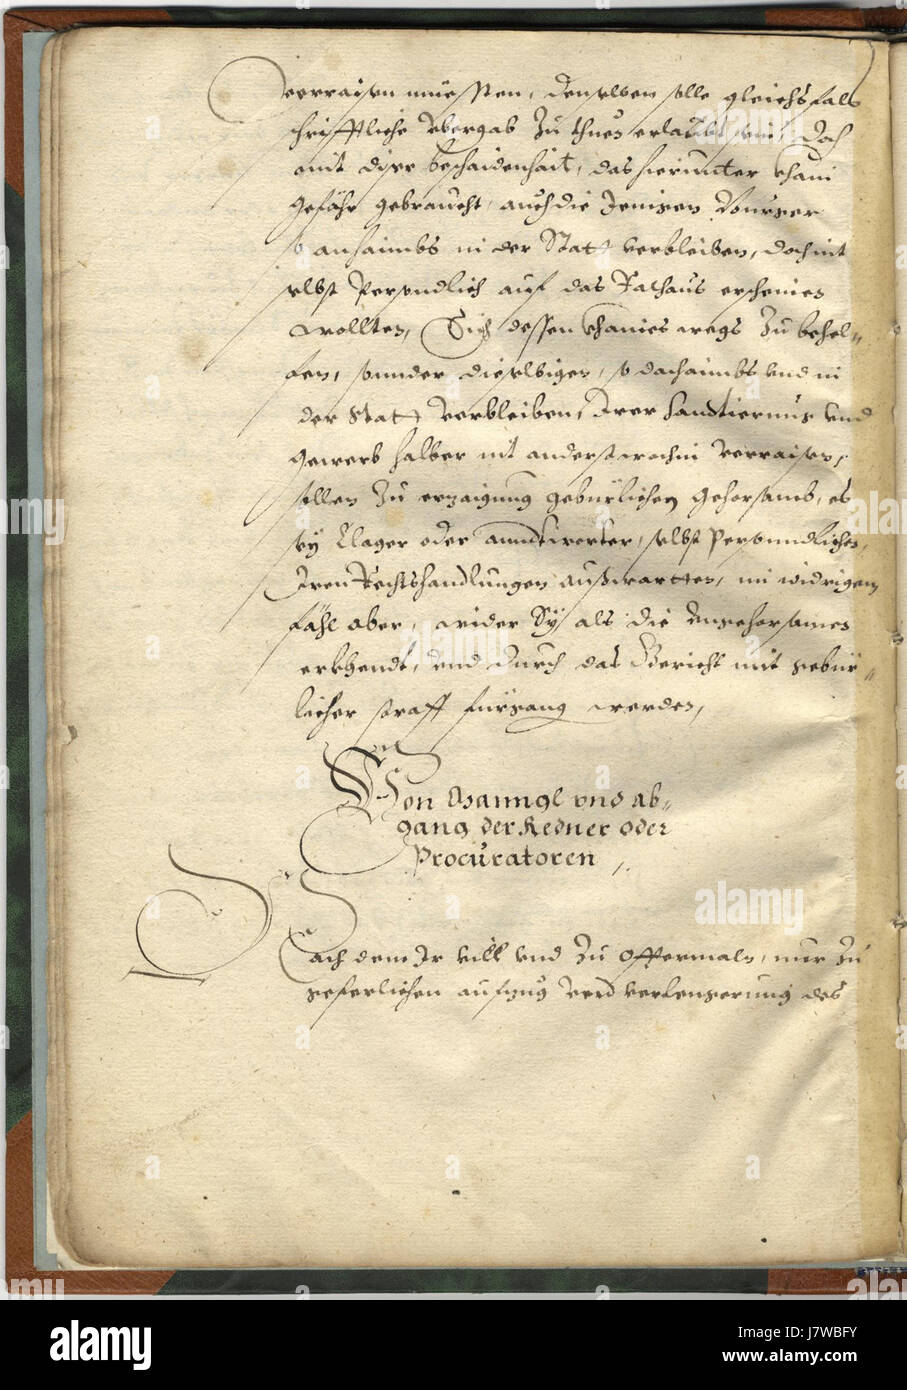 verraisen müessten, denselben solle gleichsfals
schrifftliche Übergab Zu thuen erlaubt sein, doch
mit diser beschaidenhait, das hierunter khain
gefähr gebraucht, auch die Jenigen Burger
so anhaimbs in der Statt verbleiben, doch nit
selbst Persendlich auf das Rathaus erscheinen
wollten, Sich dessen khaines wegs Zu behel-
fen, sonnder dieselbigen, so dahaimbs vnd in
der Statt verbleiben, Irer handtierung vnd
gewerb halber nit anderstwohin verraisen,
sollen Zu erzaigung gebürlichen gehorsambs, es
sey Clager oder Anntworter, selbst Persoundlichen,
Iren Rechtshandlungen außwartten, im widrigem
fähl aber, wider Sy als die vngehorsamen
erkhendt, vnd durch das Gericht mit gebür-
licher straff fürgang werden,
Von Manngl vnd ab-
gang der Redner oder
Procuratoren
Nach dem Ir vill vnd Zu offtermaln, nur Zu
geferlichen aufzug vnd verlengerung des
alamy
Image ID: J7WBFY
www.alamy.com